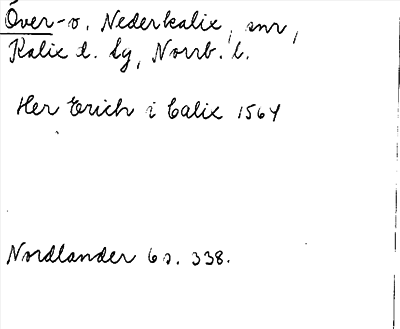 Över- o. Nederkalix, snr,
Kalix t. lg, Norrb. l.
Her Erich i Calix 1564
Nordlander 6 s. 338.